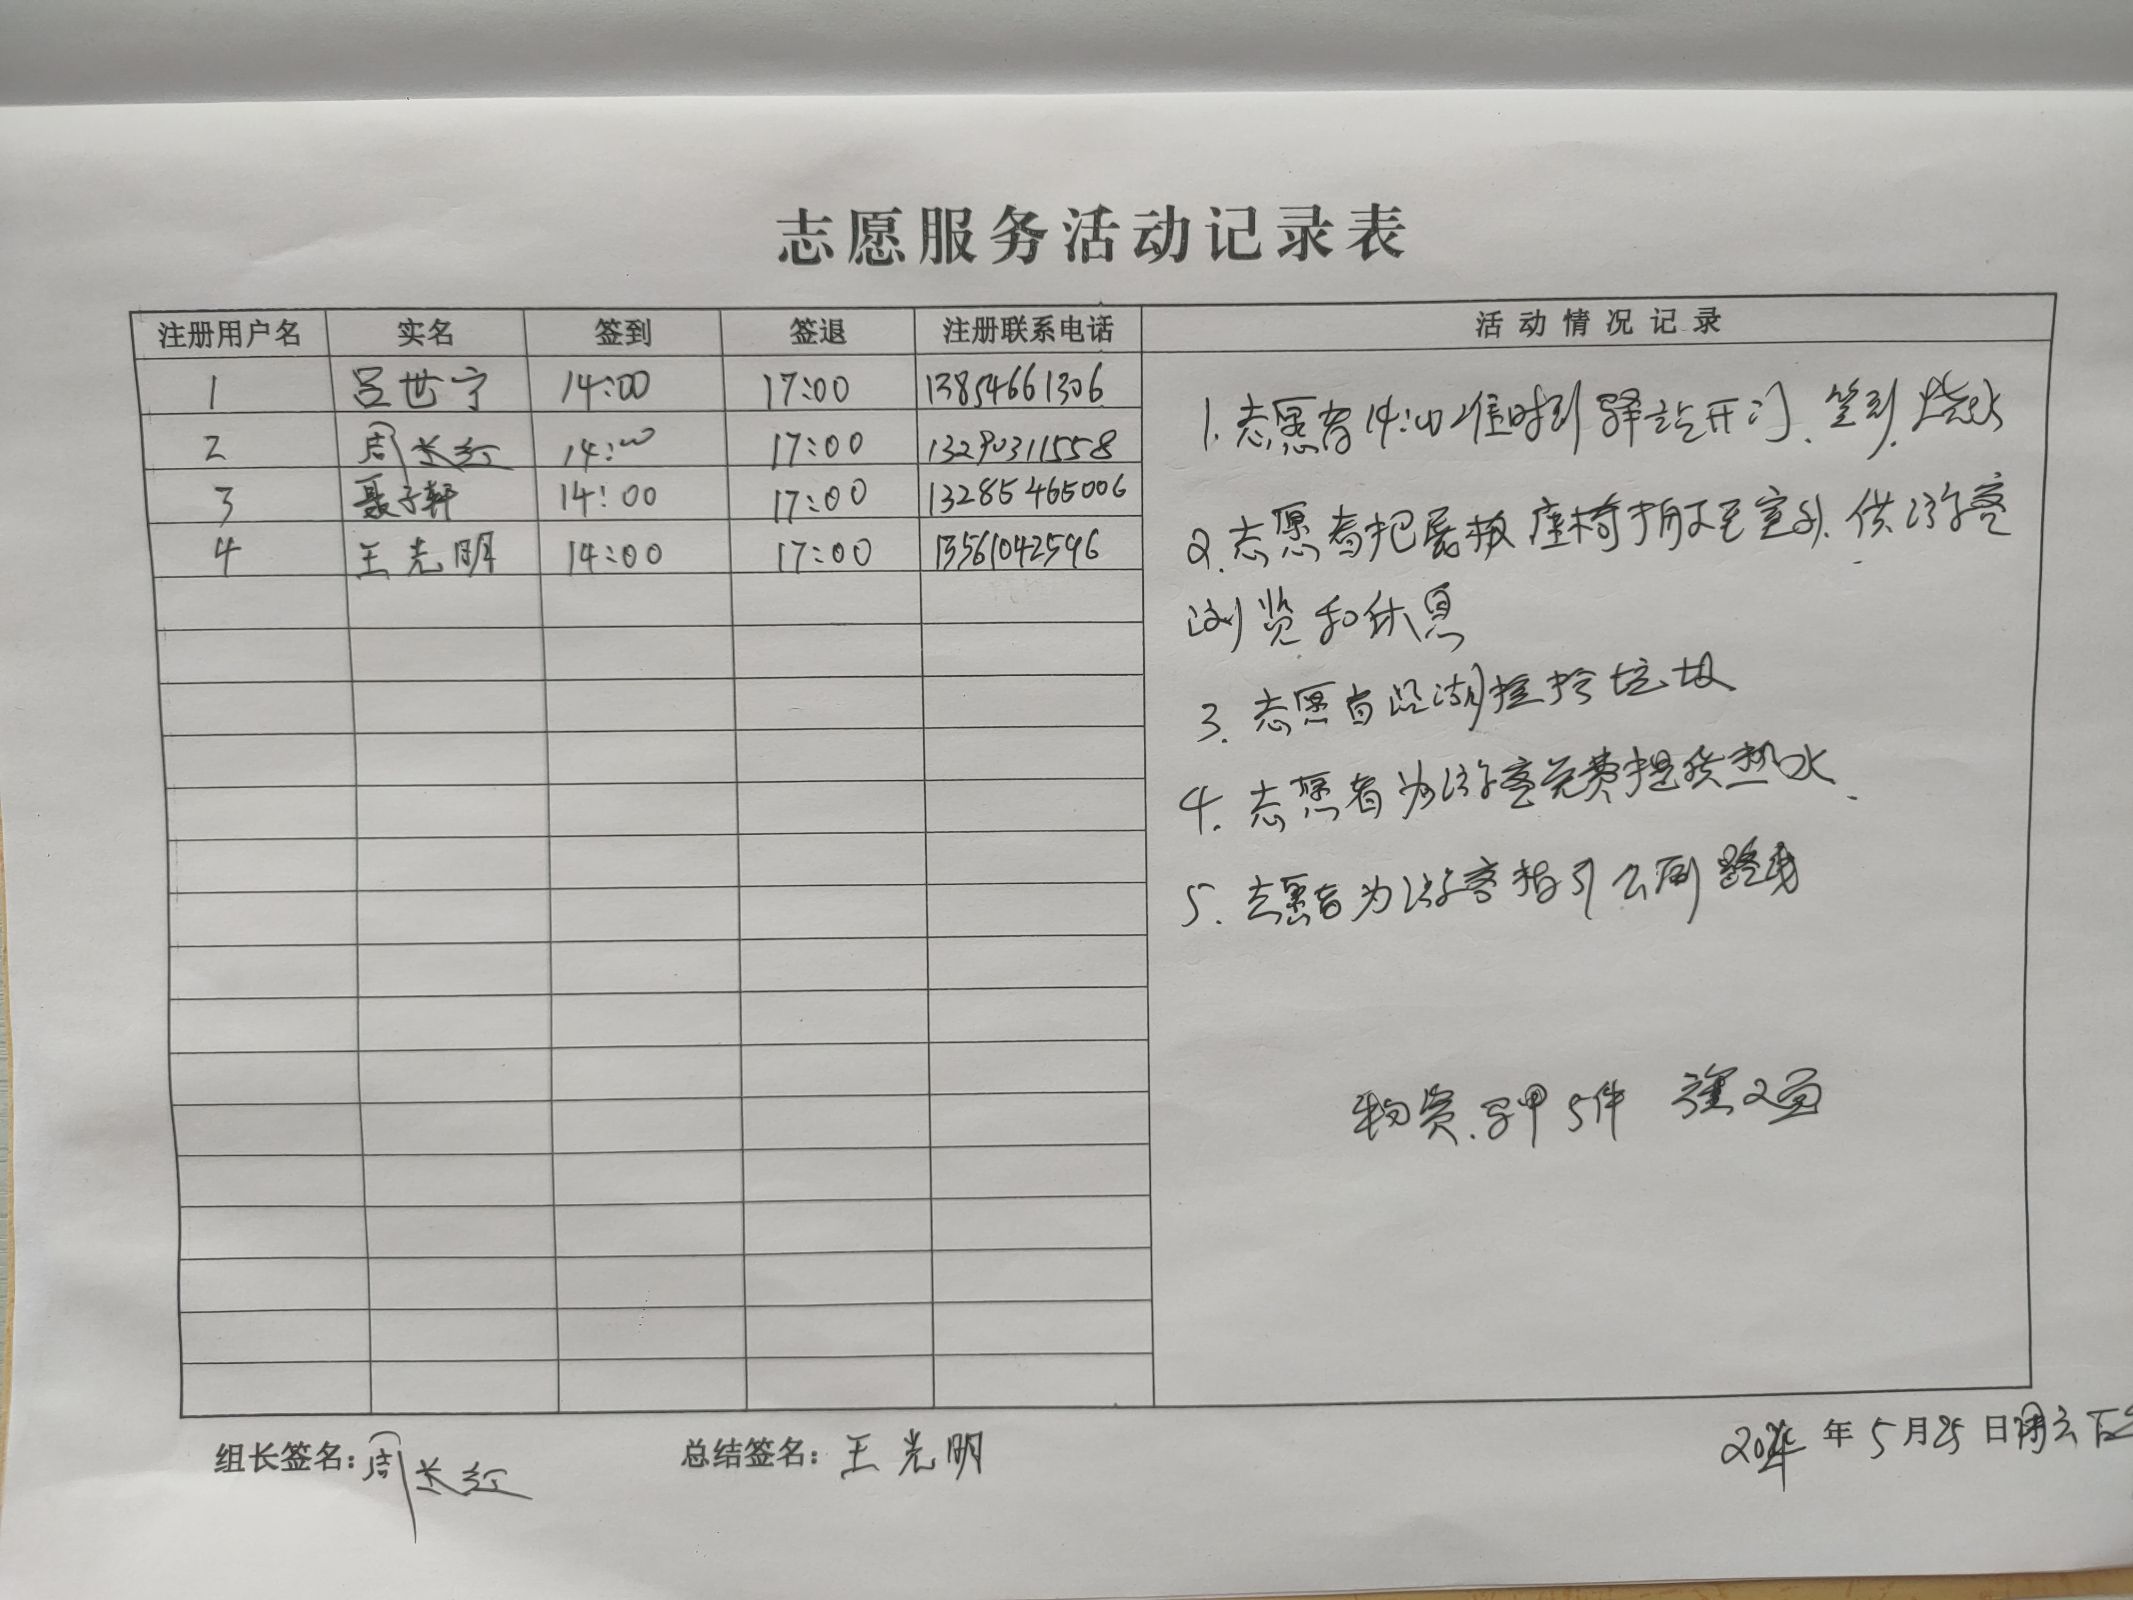 志愿服务活动记录表
注册用户名 实名 签到 签退 注册联系电话 活动情况记录
1 吕世宁 14:00 17:00 13854661306
2 周长红 14:00 17:00 13290311558
3 聂子轩 14:00 17:00 13285465006
4 王光明 14:00 17:00 13561042596
1. 志愿者14:00准时到驿站开门、签到、烧水
2. 志愿者把展板座椅摆放至室外、供游客
浏览和休息
3. 志愿者沿湖捡拾垃圾
4. 志愿者为游客免费提供热水、
5. 志愿者为游客指引公厕路线
物资、马甲5件 旗2面
组长签名:周长红 总结签名:王光明 年5月25日周六下午